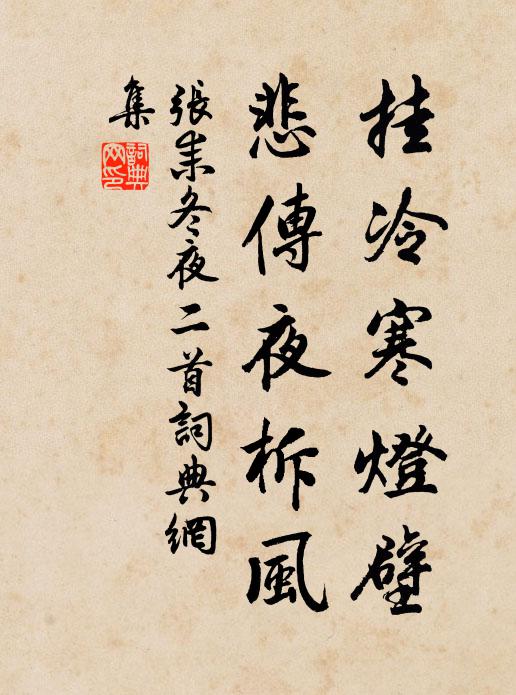 挂冷寒燈壁
悲傳夜柝風
張耒冬夜二首詞典網
集
詞典
网印